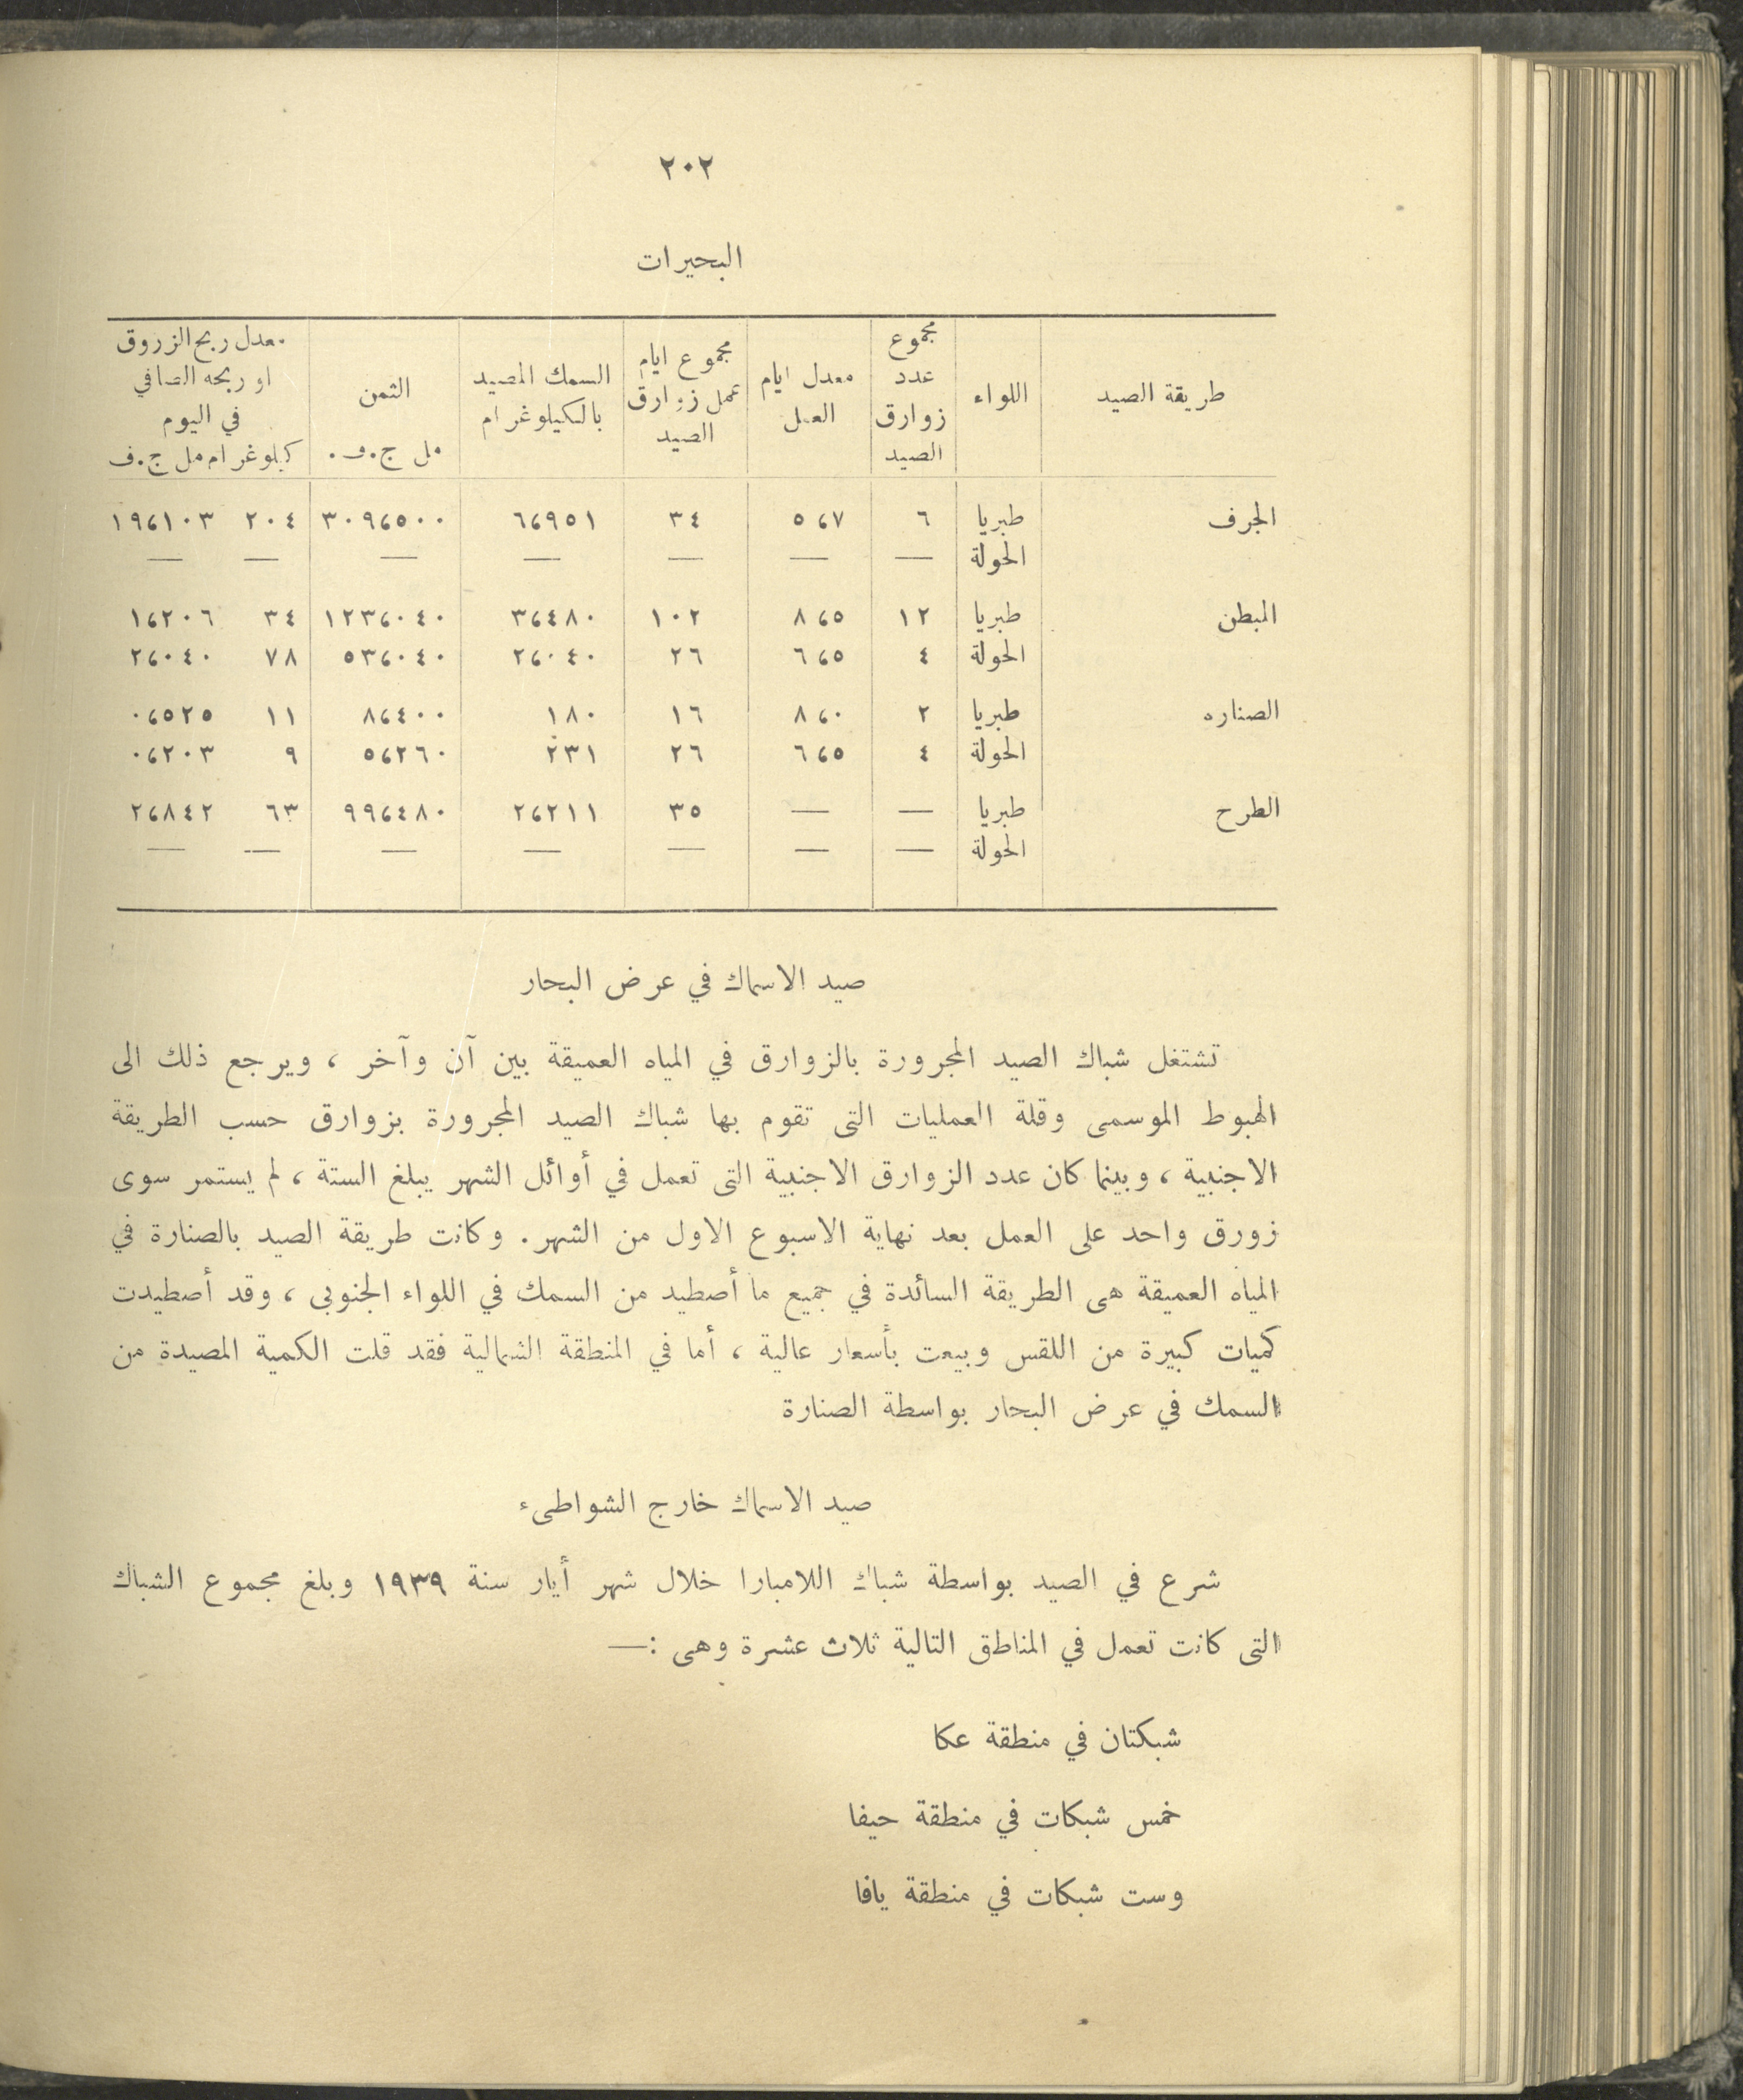 ٢٠٢
البحيرات
طريقة الصيد | اللواء | مجموع عدد زوارق الصيد | معدل ايام العمل | مجموع ايام عمل زوارق الصيد | السمك المصيد بالكيلوغرام | الثمن مل ج.ف. | معدل ربح الزروق او ربحه الصافي في اليوم كيلوغرام مل ج.ف
الجرف | طبريا | ٦ | ٥،٧ | ٣٤ | ٦،٩٥١ | ٣٠٩،٥٠٠ | ٢٠٤ | ١٩،١٠٣
الحولة | — | — | — | — | — | — | —
المبطن | طبريا | ١٢ | ٨،٥ | ١٠٢ | ٣،٤٨٠ | ١٢٣،٠٤٠ | ٣٤ | ١،٢٠٦
الحولة | ٤ | ٦،٥ | ٢٦ | ٢،٠٤٠ | ٥٣،٠٤٠ | ٧٨ | ٢،٠٤٠
الصناره | طبريا | ٢ | ٨،٠ | ١٦ | ١٨٠ | ٨،٤٠٠ | ١١ | ٠،٥٢٥
الحولة | ٤ | ٦،٥ | ٢٦ | ٢٣١ | ٥،٢٦٠ | ٩ | ٠،٢٠٣
الطرح | طبريا | — | — | ٣٥ | ٢،٢١١ | ٩٩،٤٨٠ | ٦٣ | ٢،٨٤٢
الحولة | — | — | — | — | — | — | —
صيد الاسماك في عرض البحار
تشتغل شباك الصيد المجرورة بالزوارق في المياه العميقة بين آن وآخر ، ويرجع ذلك الى
الهبوط الموسمى وقلة العمليات التى تقوم بها شباك الصيد المجرورة بزوارق حسب الطريقة
الاجنبية ، وبينما كان عدد الزوارق الاجنبية التى تعمل في أوائل الشهر يبلغ الستة ، لم يستمر سوى
زورق واحد على العمل بعد نهاية الاسبوع الاول من الشهر . وكانت طريقة الصيد بالصنارة في
المياه العميقة هى الطريقة السائدة في جميع ما أصطيد من السمك في اللواء الجنوبى ، وقد أصطيدت
كميات كبيرة من اللقس وبيعت بأسعار عالية ، أما في المنطقة الشمالية فقد قلت الكمية المصيدة من
السمك في عرض البحار بواسطة الصنارة
صيد الاسماك خارج الشواطىء
شرع في الصيد بواسطة شباك اللامبارا خلال شهر أيار سنة ١٩٣٩ وبلغ مجموع الشباك
التى كانت تعمل في المناطق التالية ثلاث عشرة وهى :—
شبكتان في منطقة عكا
خمس شبكات في منطقة حيفا
وست شبكات في منطقة يافا